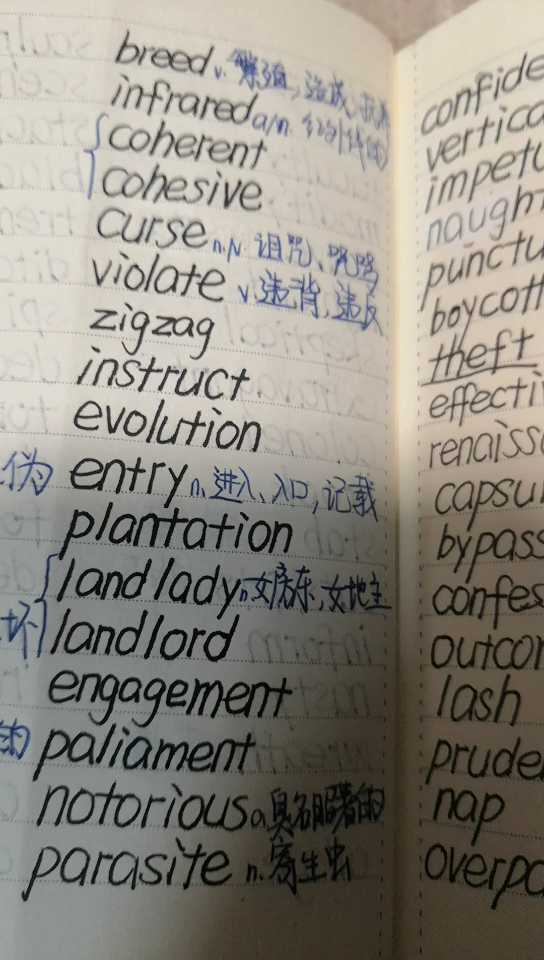 breed v. 繁殖, 造成, 抚养
infrared a/n. 红外线(的)
coherent
cohesive
curse n./v. 诅咒、咒骂
violate v. 违背, 违反
zigzag
instruct
evolution
伪 entry n. 进入、入口, 记载
plantation
landlady n. 女房东, 女地主
坏 landlord
engagement
的 paliament
notorious a. 臭名昭著的
parasite n. 寄生虫
confide
vertica
impetu
naught
punctu
boycott
theft
effecti
renaissa
capsul
bypass
confes
outcom
lash
pruden
nap
overpo